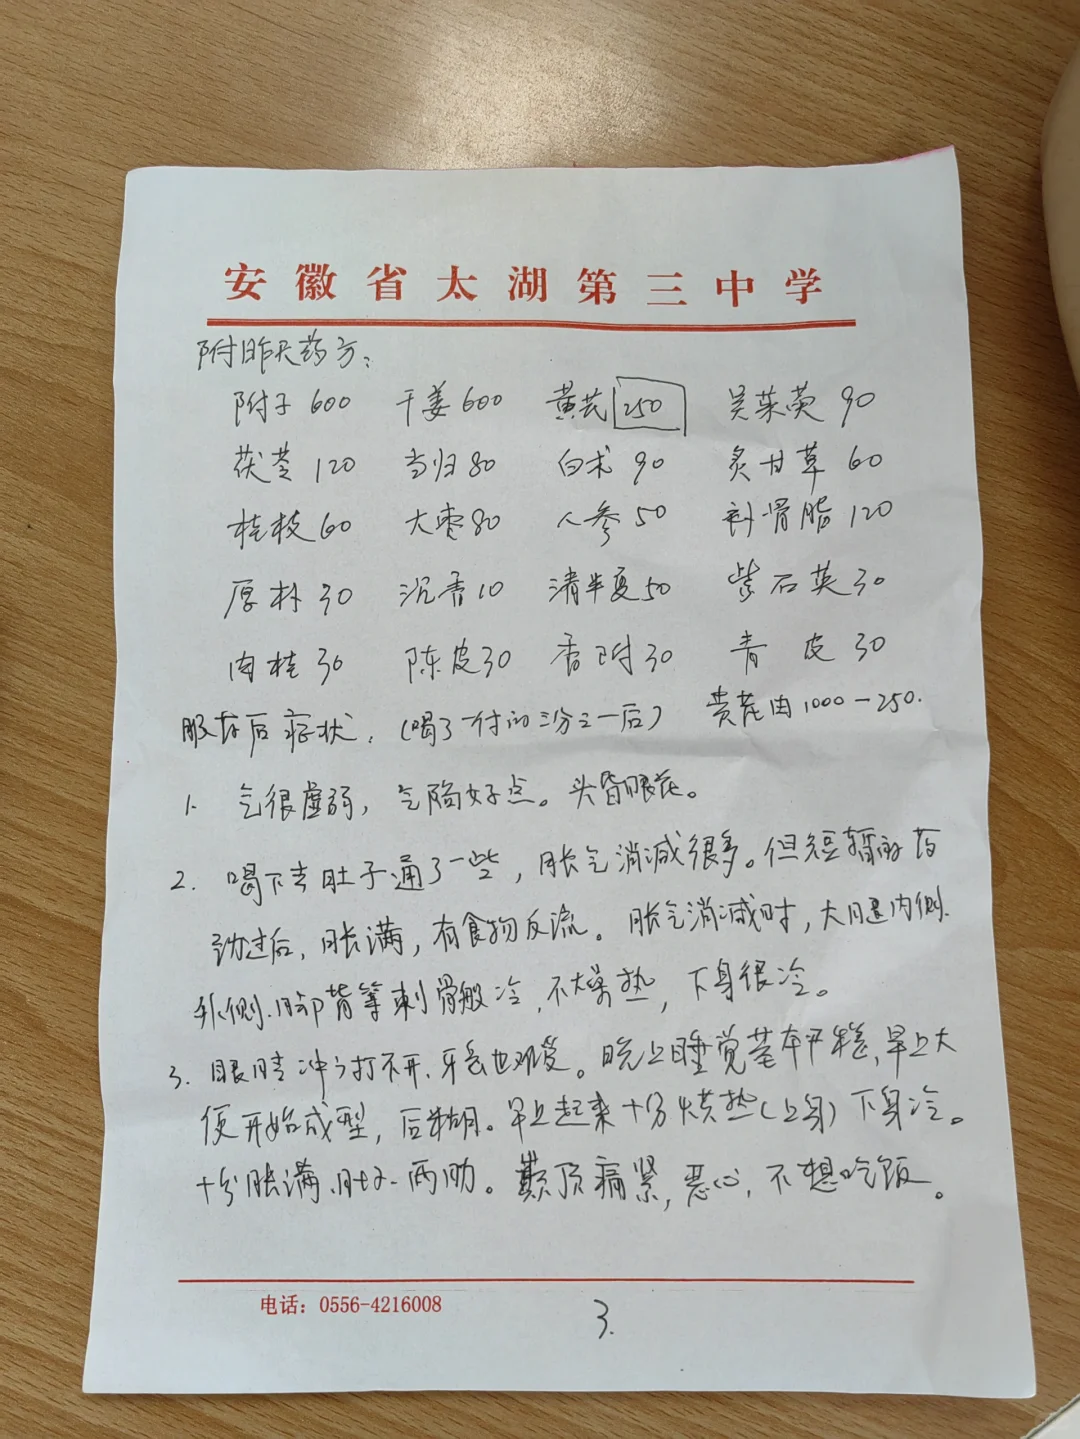 安徽省太湖第三中学
附昨天药方：
附子 600 干姜 600 黄芪 250 吴茱萸 90
茯苓 120 当归 80 白术 90 炙甘草 60
桂枝 60 大枣 80 人参 50 补骨脂 120
厚朴 30 沉香 10 清半夏 50 紫石英 30
肉桂 30 陈皮 30 香附 30 青皮 30
服药后症状：（喝了一付的三分之一后） 黄芪由1000—250.
1. 气很虚弱，气陷好点。头昏眼花。
2. 喝下去肚子通了一些，胀气消减很多。但短暂的药
劲过后，胀满，有食物反流。胀气消减时，大腿内侧.
外侧.脚背等刺骨般冷，不燥热，下身很冷。
3. 眼睛冲得打不开.牙齿也难受。晚上睡觉基本平稳，早上大
便开始成型，后糊。早上起来十分燥热（上身）下身冷。
十分胀满.肚子.两肋。巅顶痛紧，恶心，不想吃饭。
电话：0556-4216008
3.